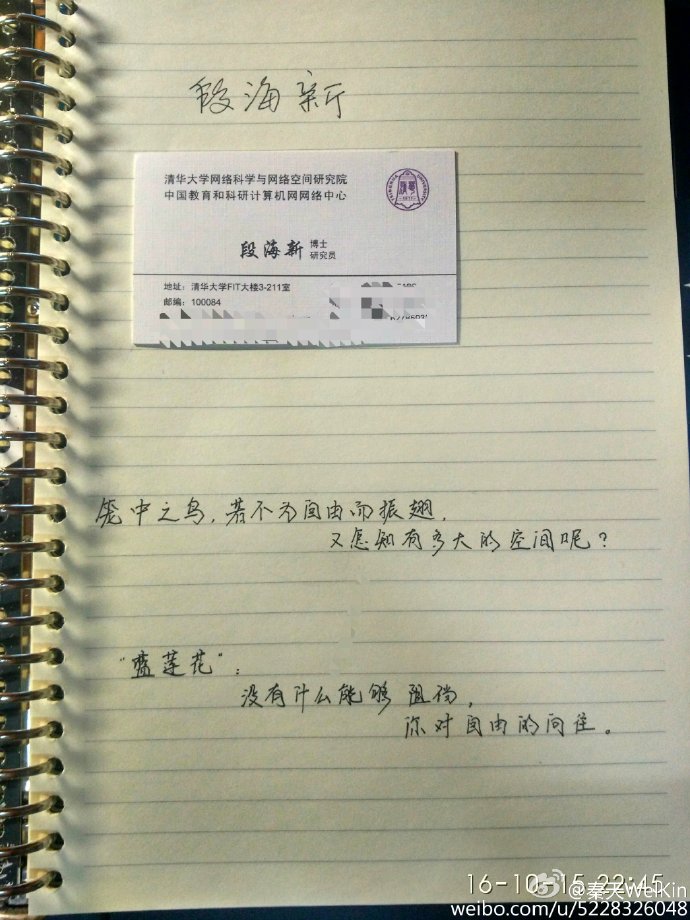 段海新
清华大学网络科学与网络空间研究院
中国教育和科研计算机网网络中心
段海新 博士
研究员
地址：清华大学FIT大楼3-211室
邮编：100084
笼中之鸟，若不为自由而振翅，
又怎知有多大的空间呢？
“蓝莲花”：
没有什么能够阻挡，
你对自由的向往。
16-10-15 22:45
@秦天WeiKin
weibo.com/u/5228326048